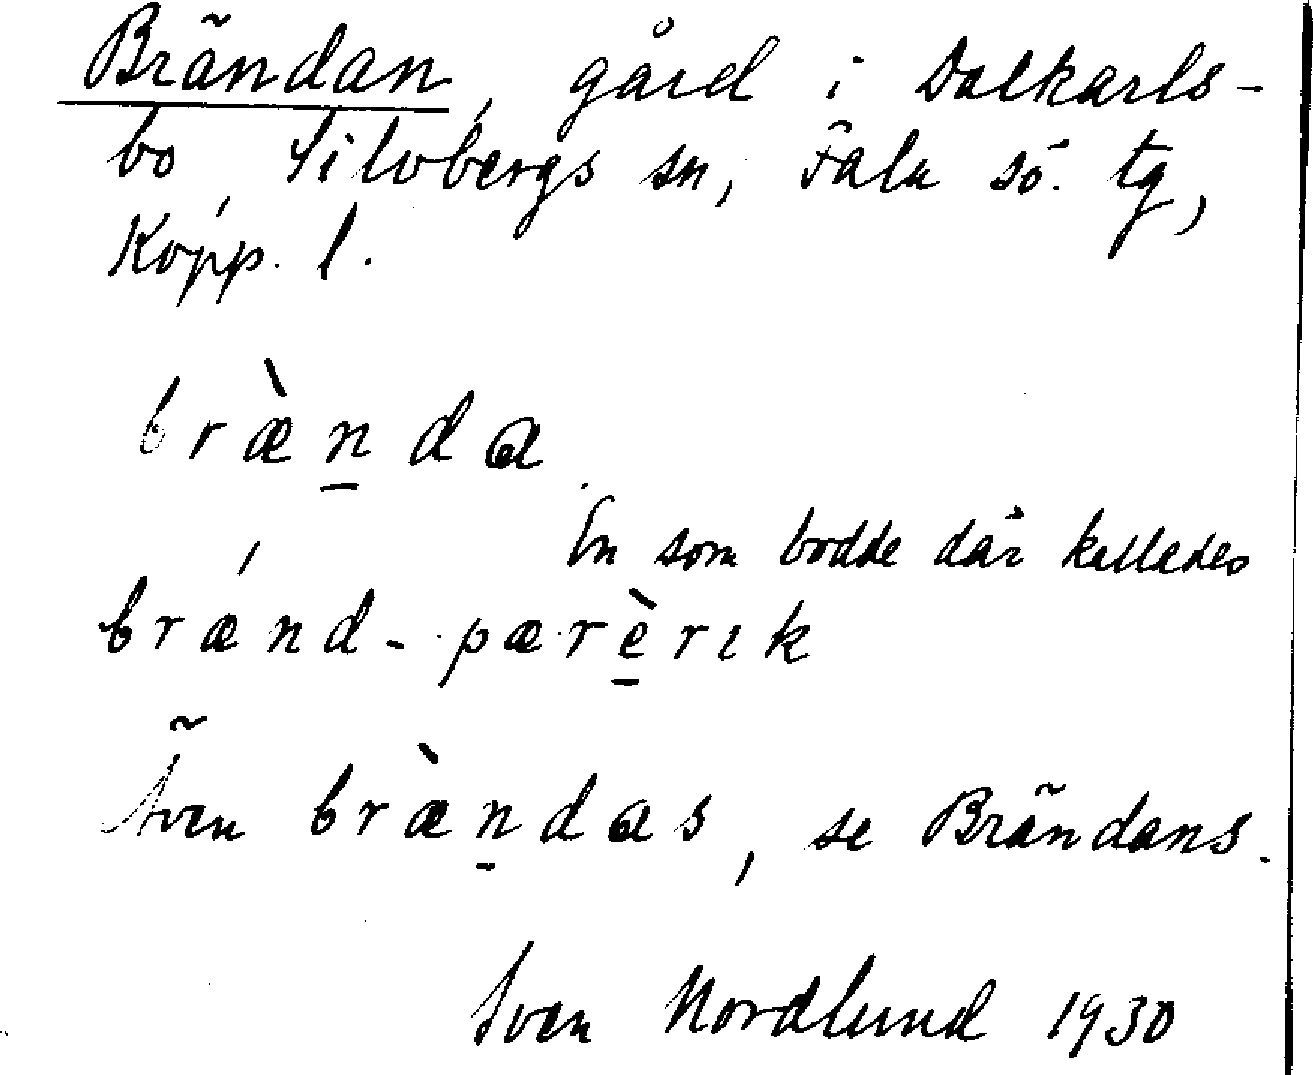 Brändan, gård i Dalkarls-
bo, Silvbergs sn, Falu sö. tg,
Kopp. l.
bræ̀n̠da
En som bodde där kallades
brǽnd-pærè̠rık
Även bræ̀n̠das, se Brändans.
Sven Nordlund 1930